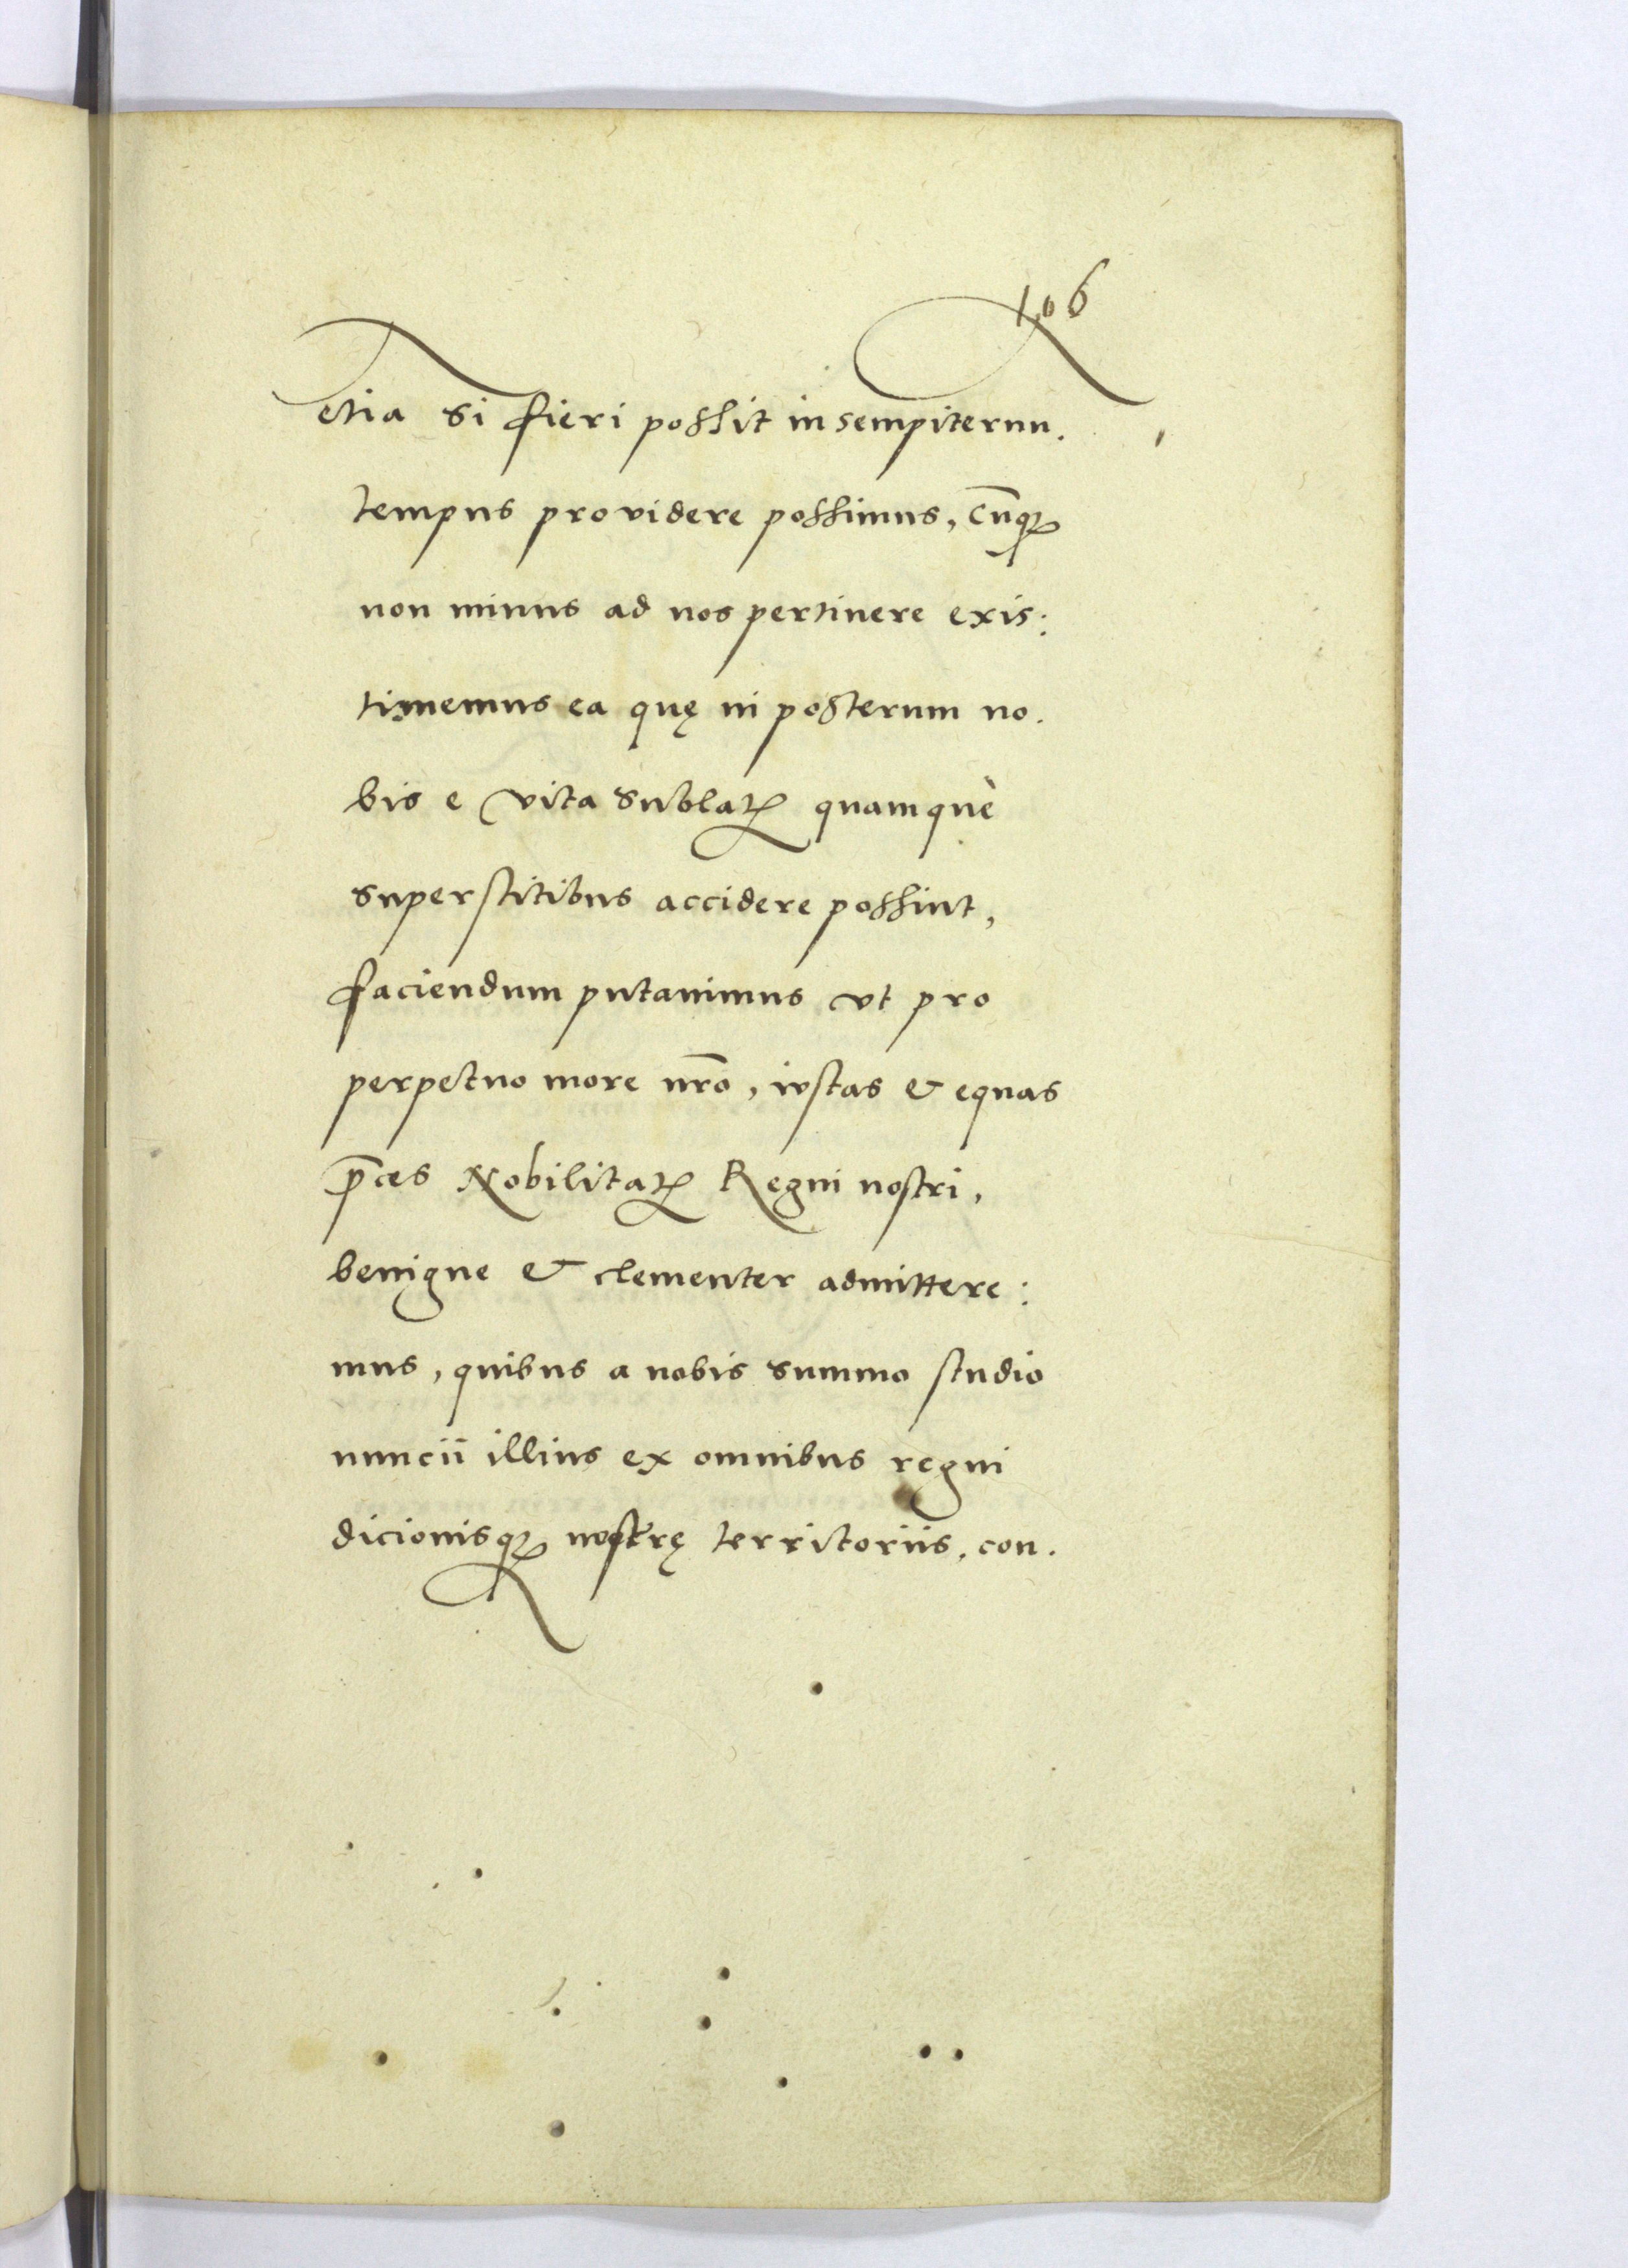 106
etia si fieri possit in sempiternu.
tempus providere possimus, cūq₃
non minus ad nos pertinere exis:
timemus ea quę in posterum no.
bis e vita sublatꝭ quamquè
superstitibus accidere possint,
faciendum putauimus vt pro
perpetuo more nr̄o, iustas & equas
p̄ces Nobilitatꝭ Regni nostri,
benigne & clementer admittere:
mus, quibus a nobis summo studio
nuncii illius ex omnibus regni
dicionisq₃ nostrę territoriis, con.